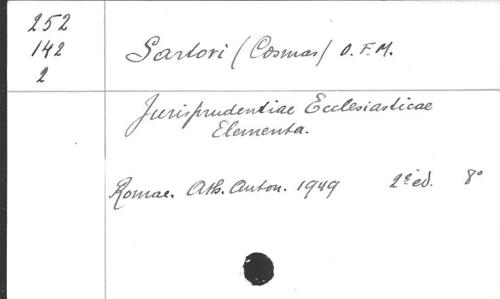 252
142
2
Sartori (Cosmas) O.F.M.
Jurisprudentiae Ecclesiasticae
Elementa.
Romae. Ath. Anton. 1949 2e éd. 8°